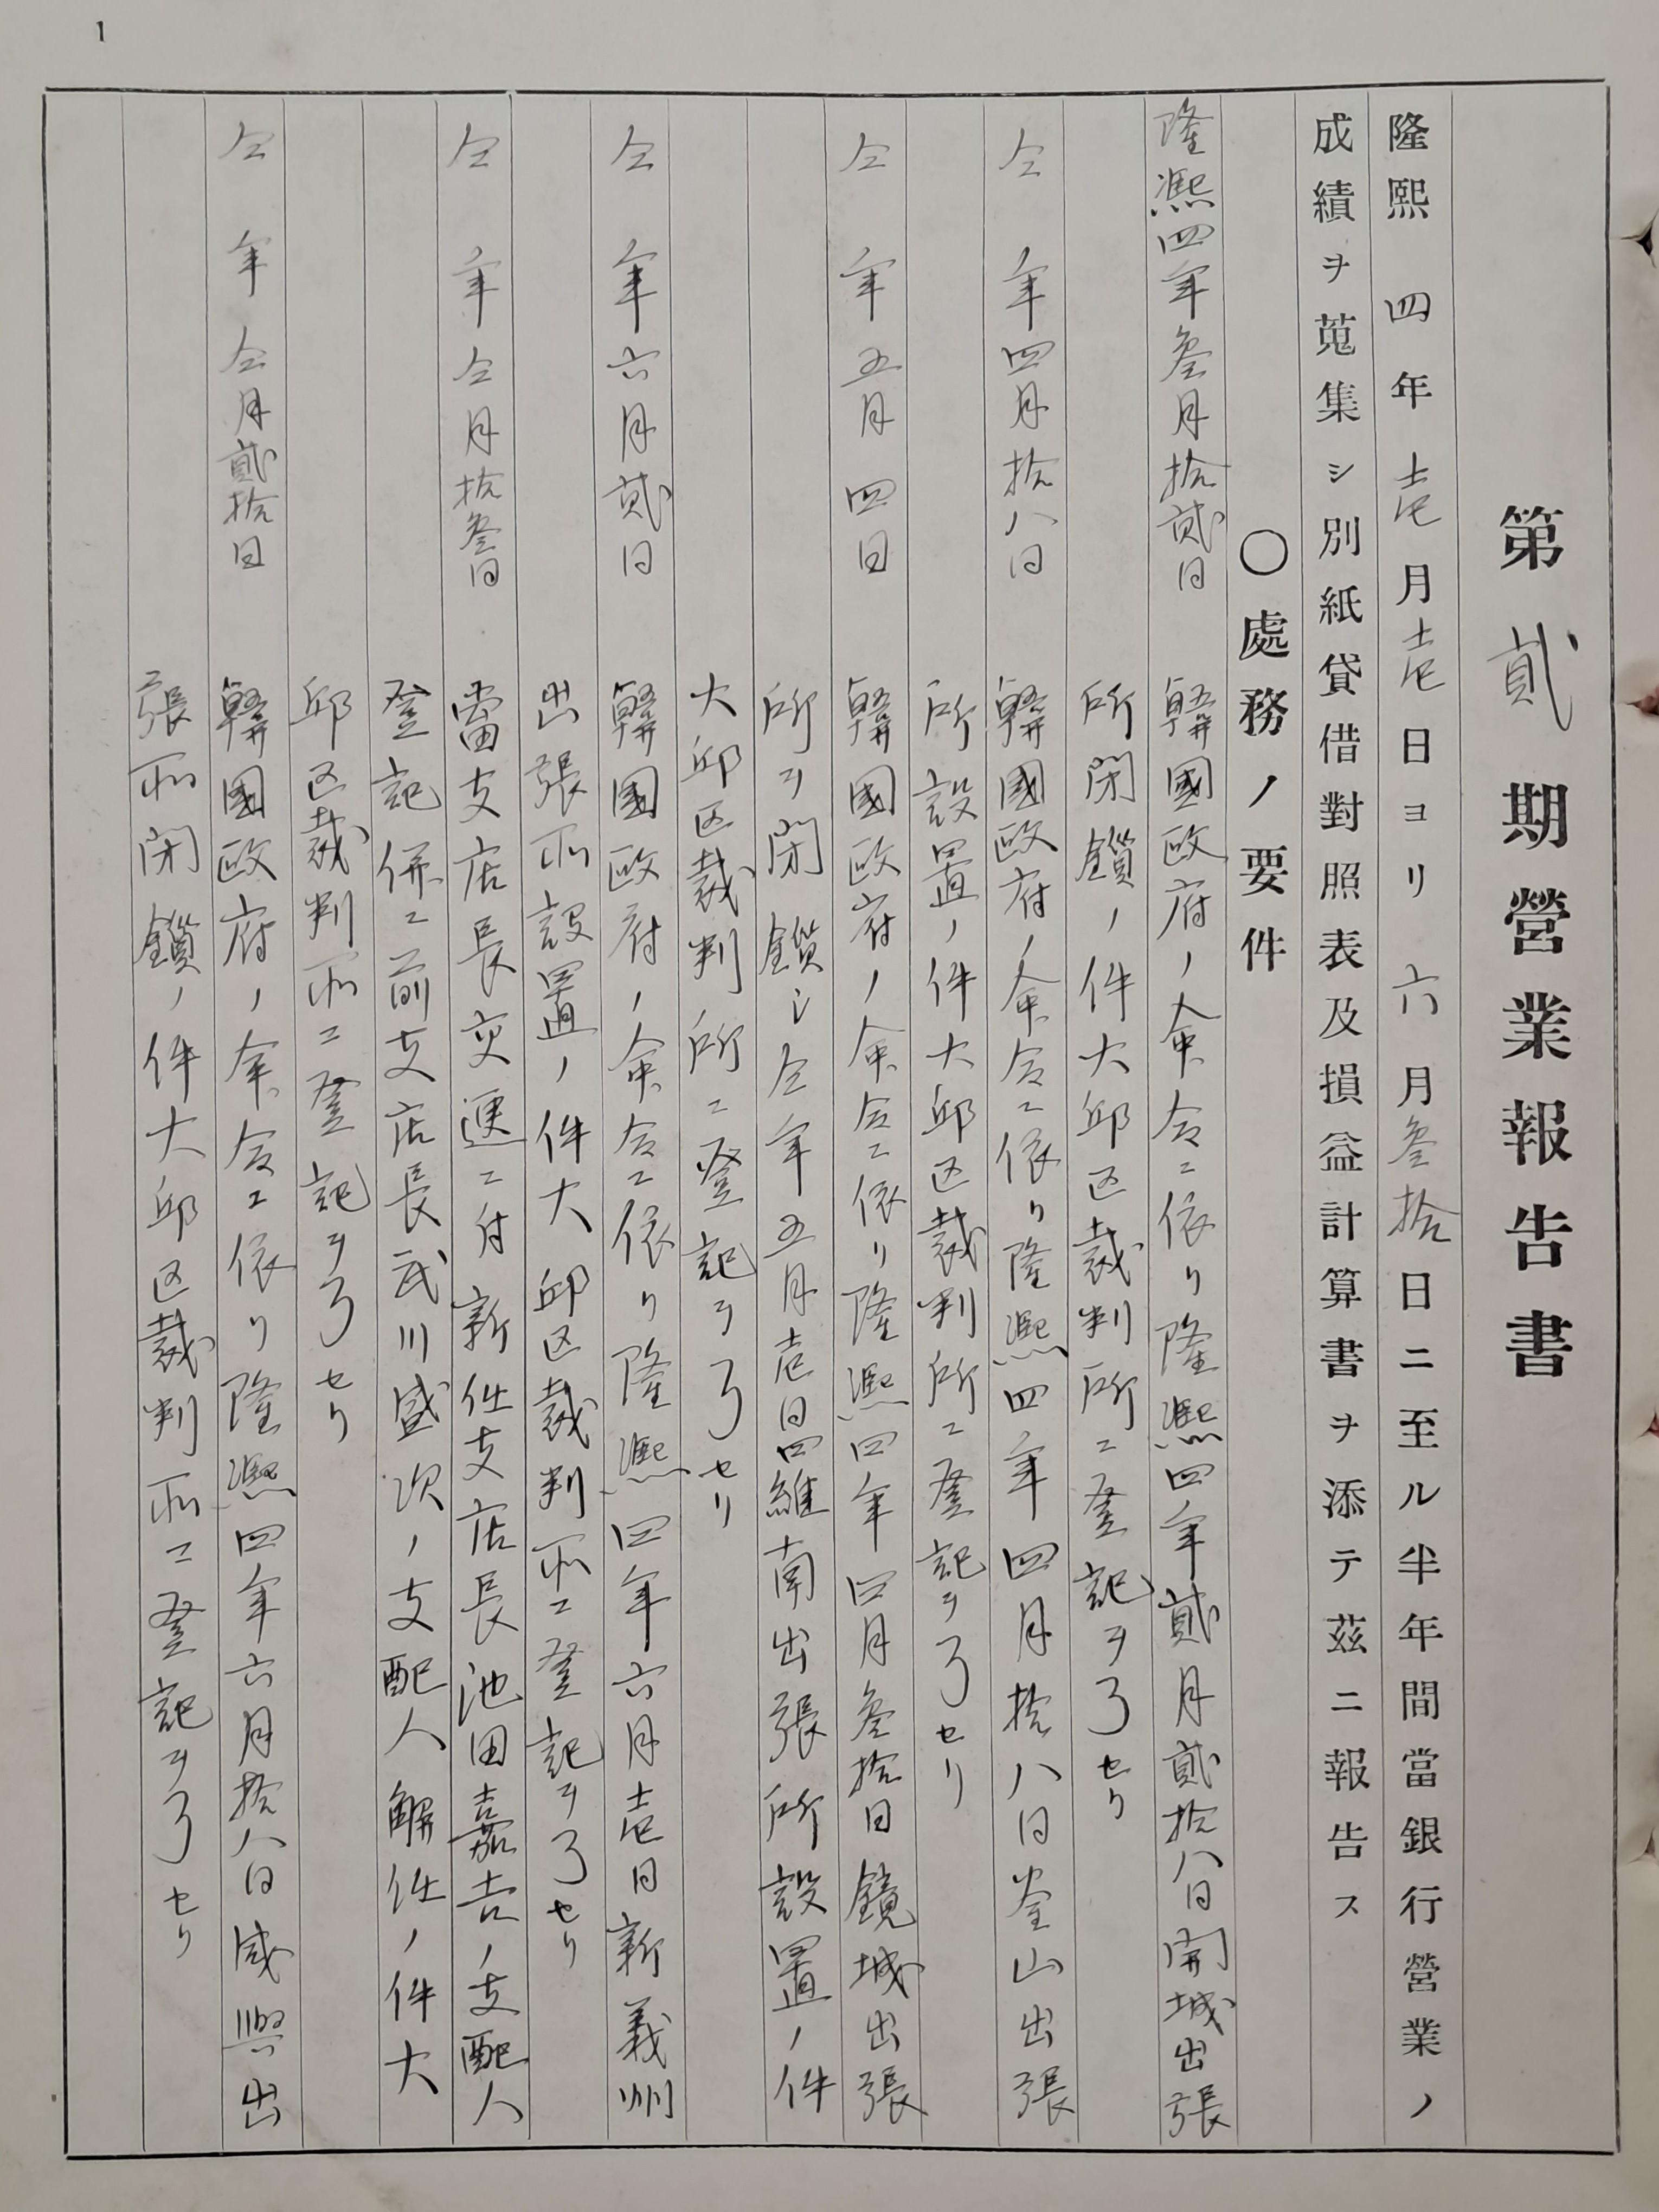 1
第貳期營業報告書
隆熙四年壱月壱日ヨリ六月參拾日ニ至ル半年間當銀行營業ノ
成績ヲ蒐集シ別紙貸借對照表及損益計算書ヲ添テ茲ニ報告ス
〇處務ノ要件
隆熙四年參月拾貳日 韓國政府ノ命令ニ依リ隆熙四年貳月貳拾八日開城出張
所閉鎖ノ件大邱区裁判所ニ登記ヲ了セリ
仝年四月拾八日 韓國政府ノ命令ニ依リ隆熙四年四月拾八日釜山出張
所設置ノ件大邱区裁判所ニ登記ヲ了セリ
仝年五月四日 韓國政府ノ命令ニ依リ隆熙四年四月參拾日鏡城出張
所ヲ閉鎖シ仝年五月壱日羅南出張所設置ノ件
大邱区裁判所ニ登記ヲ了セリ
仝年六月貳日 韓國政府ノ命令ニ依リ隆熙四年六月壱日新義州
出張所設置ノ件大邱区裁判所ニ登記ヲ了セリ
仝年仝月拾參日 當支店長交迭ニ付新任支店長池田嘉吉ノ支配人
登記併ニ前支店長武川盛次ノ支配人解任ノ件大
邱区裁判所ニ登記ヲ了セリ
仝年仝月貳拾日 韓國政府ノ命令ニ依リ隆熙四年六月拾八日咸興出
張所閉鎖ノ件大邱区裁判所ニ登記ヲ了セリ